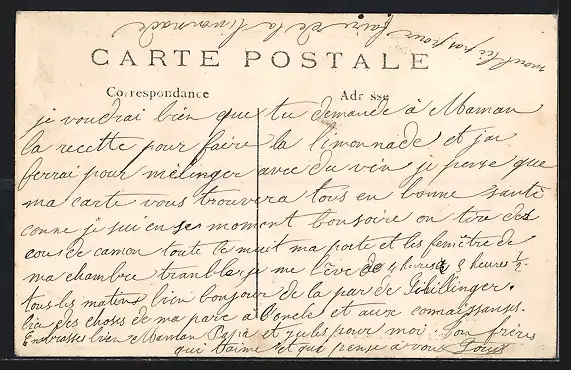 CARTE POSTALE
Correspondance
Adresse
je voudrai bien que tu demande à Maman
la recette pour faire la limonnade et j'ai
ferrai pour mélenger avec du vin je pense que
ma carte vous trouvera tous en bonne santé
conne je sui en se moment bonsoire on tire des
cous de canon toute le nuit ma porte et les fenêtre de
ma chambre tranble je me lève de 4 heures à 5 heures ½
tous les matins bien bonjour de la par de
bien des choses de ma pare à l'oncle et aux connaissanses.
Enbrasses bien Maman Papa et jules pour moi. Ton frère
qui t'aime et que pense à vous Louis
pour faire de la limonnade